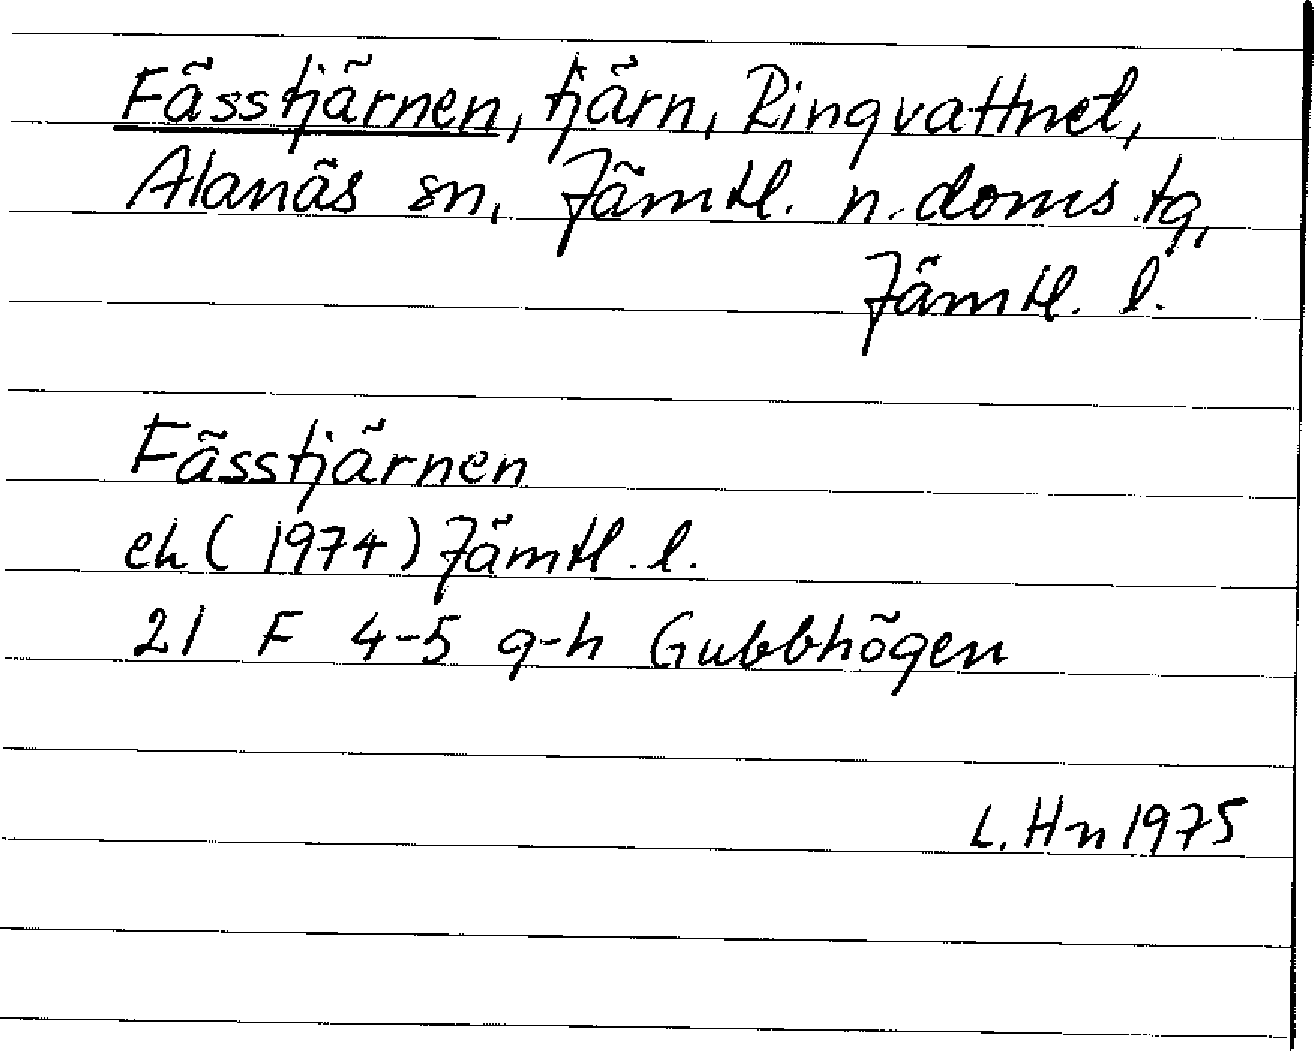 Fässtjärnen, tjärn, Ringvattnet,
Alanäs sn, Jämtl. n. doms.tg,
Jämtl. l.
Fässtjärnen
ek (1974) Jämtl. l.
21 F 4-5 g-h Gubbhögen
L. Hn 1975